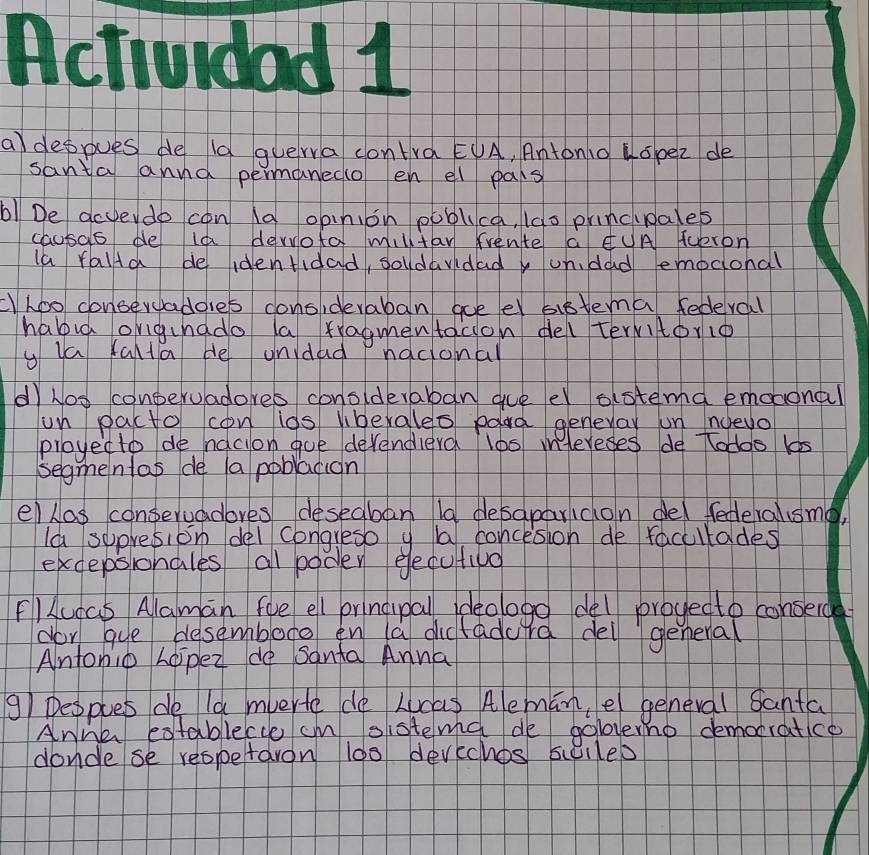 Actividad 1
a) despues de la guerra contra EUA, Antonio López de
santa anna permanecio en el pais
b) De acuerdo con la opinión pública, las principales
causas de la derrota militar frente a EUA fueron
la falta de identidad, solidaridad y unidad emocional
c) Los conservadores consideraban que el sistema federal
habia originado la fragmentacion del territorio
y la falta de unidad nacional
d) Los conservadores consideraban que el sistema emocional
un pacto con los liberales para generar un nuevo
proyecto de nacion que defendiera los intereses de todos los
segmentas de la poblacion
e) Los conservadores deseaban la desaparicion del federalismo,
la supresión del Congreso y la concesion de facultades
excepsionales al poder ejecutivo
F) Lucas Alamán fue el principal ideologo del proyecto conserva-
dor que desemboco en la dictadura del general
Antonio López de Santa Anna
g) Despues de la muerte de Lucas Alemán, el general Santa
Anna establecio un sistema de gobierno democratico
donde se respetaron los derechos siviles